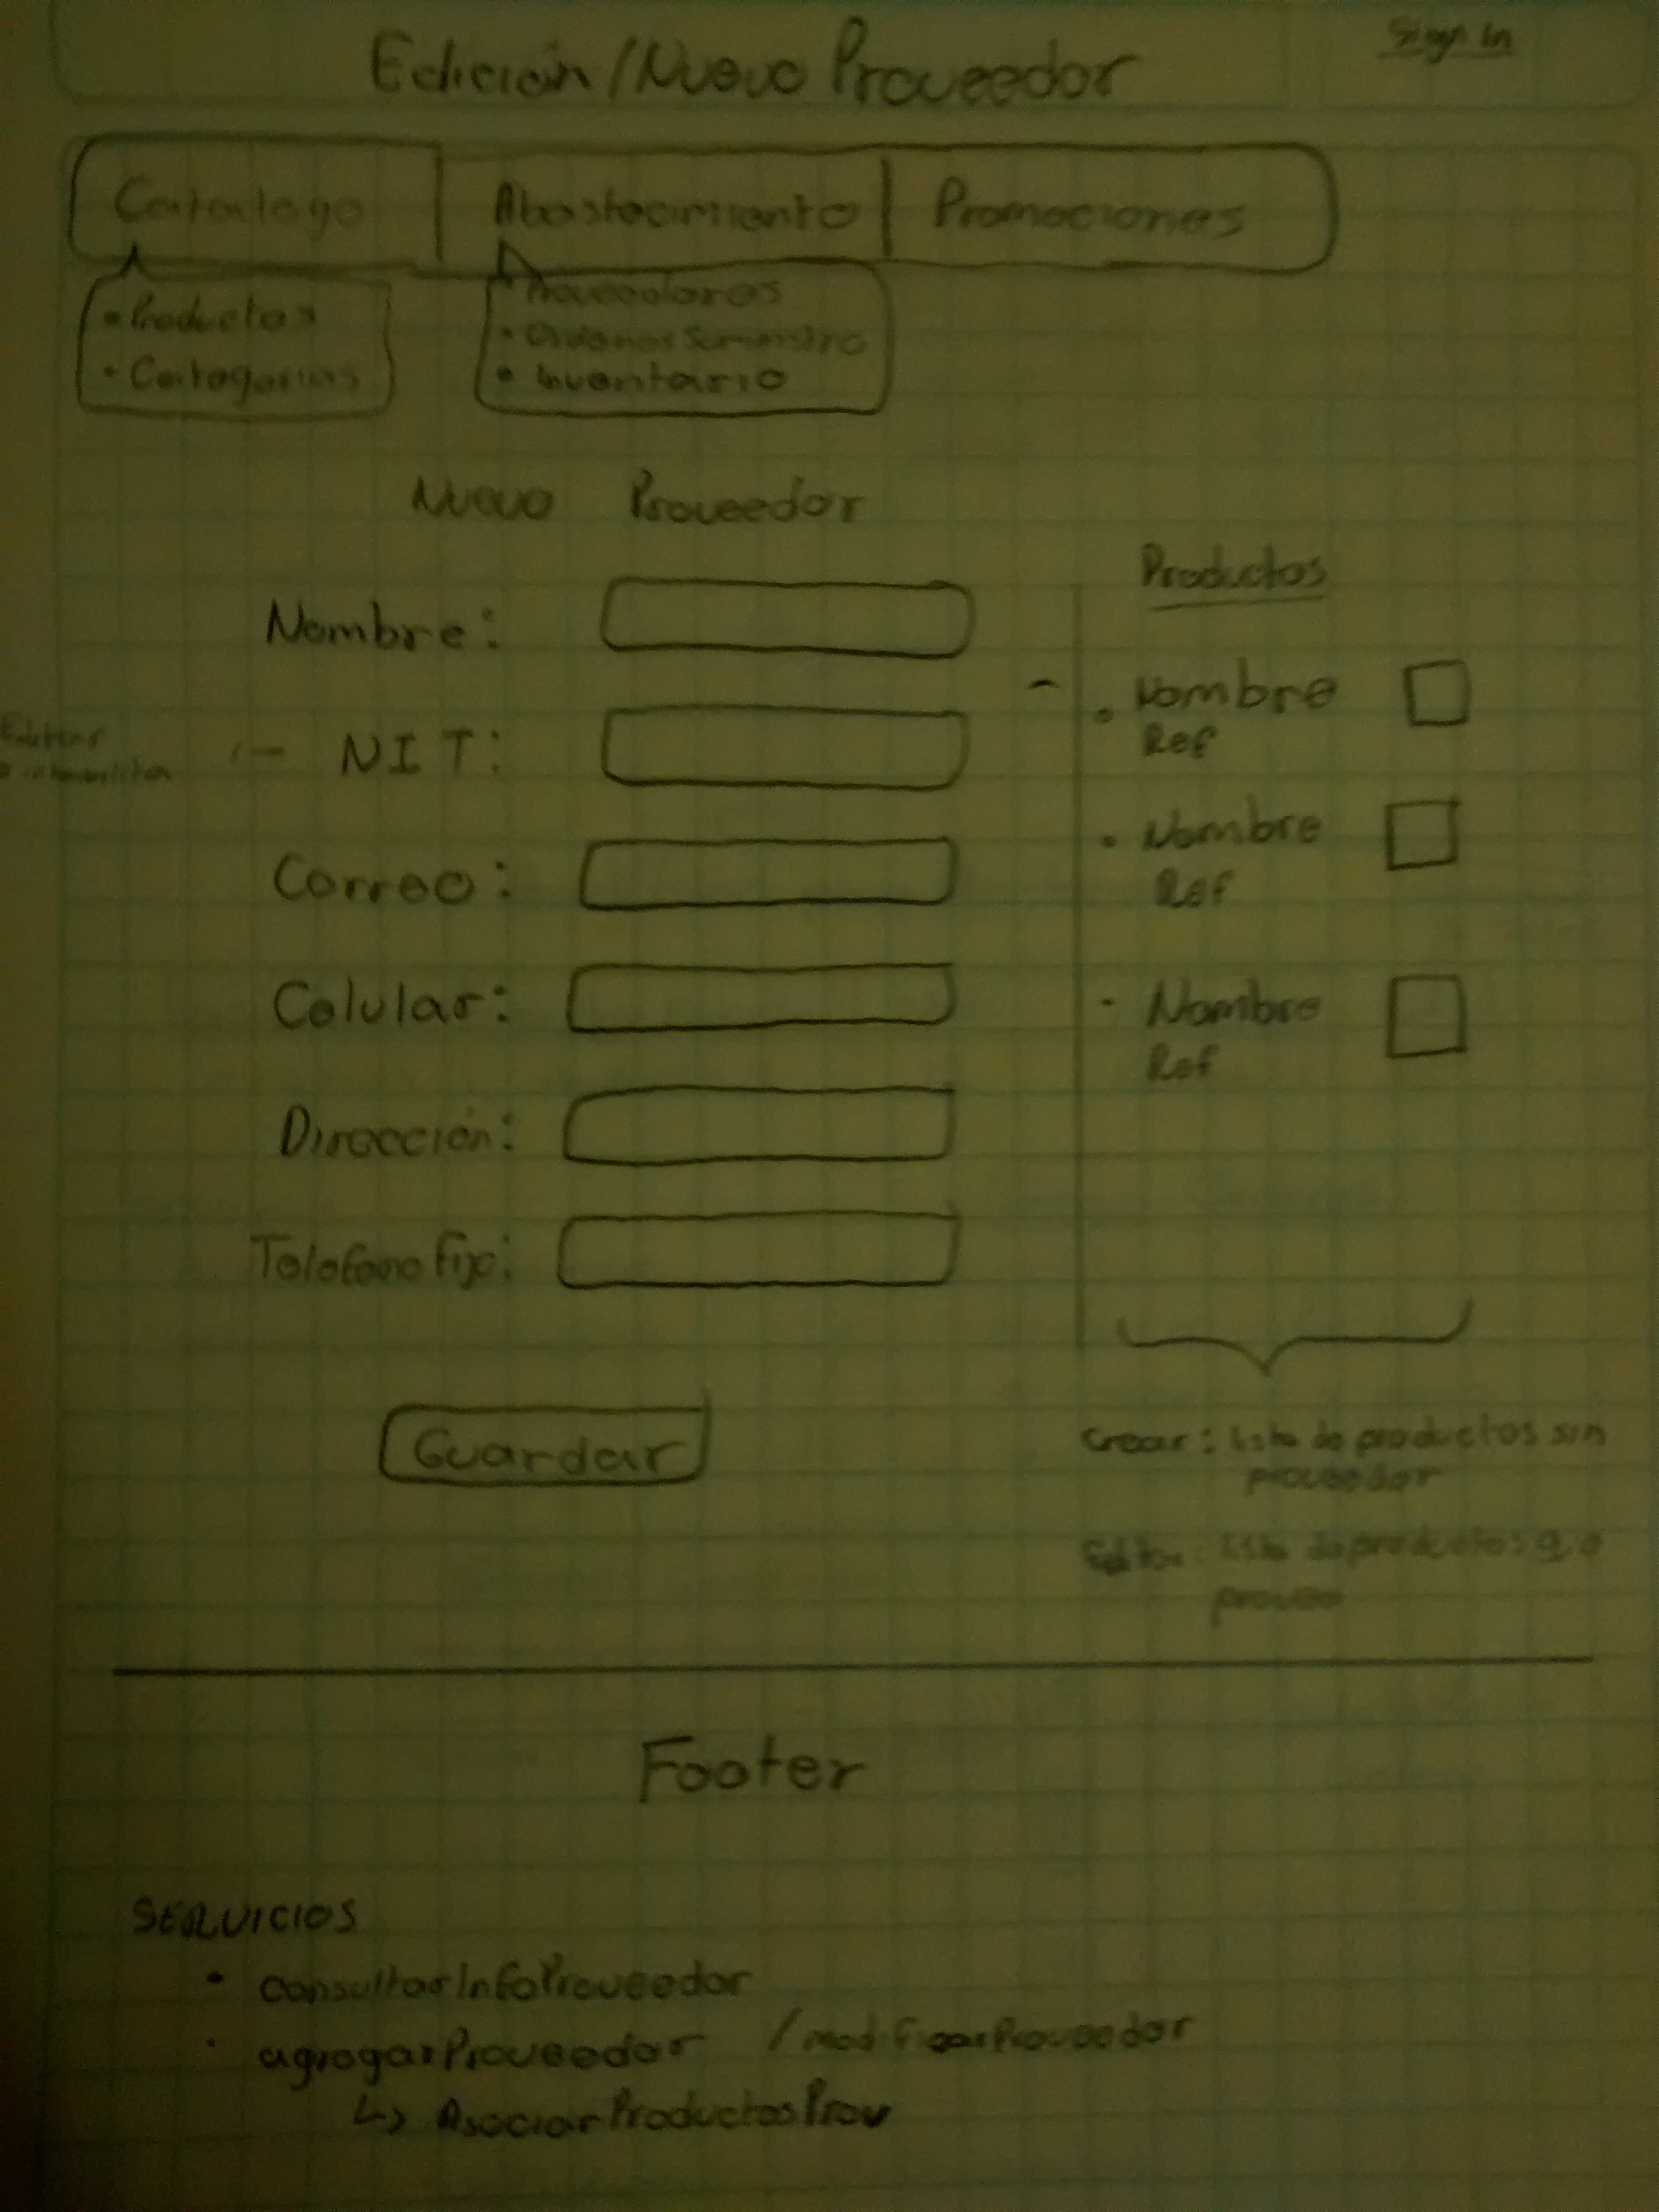 Edición/Nuevo Proveedor
Sign In
Catalogo
Abastecimiento
Promociones
• Productos
• Categorias
Proveedores
• Ordenes Suministro
• Inventario
Nuevo Proveedor
Nombre:
Editar
NIT:
Correo:
Celular:
Dirección:
Telefono Fijo:
Guardar
Productos
• Nombre
Ref
• Nombre
Ref
- Nombre
Ref
Crear: Lista de productos sin
proveedor
Editar: Lista de productos q
provee
Footer
SERVICIOS
• consultarInfoProveedor
• agregarProveedor /modificarProveedor
↳ AsociarProductosProv